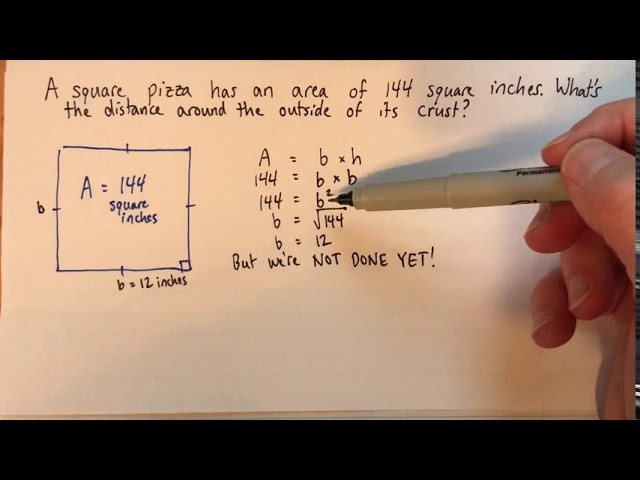 A square pizza has an area of 144 square inches. What's
the distance around the outside of its crust?
A = 144
square
inches
b
b = 12 inches
A = b × h
144 = b × b
144 = b²
b = √144
b = 12
But we're NOT DONE YET!
Permanent